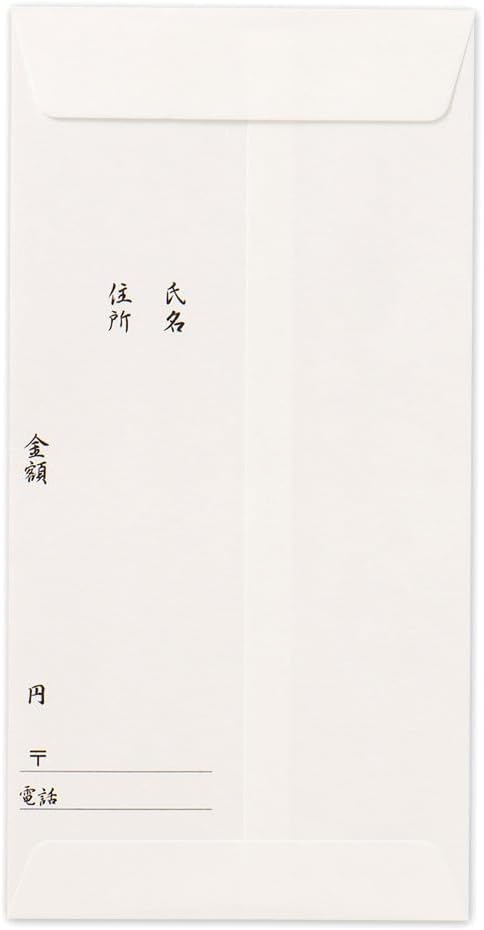 氏名
住所
金額
円
〒
電話